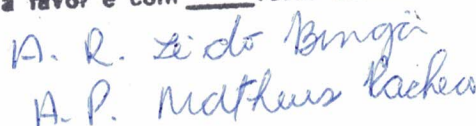 a favor e com
A. R. Zé do Bingá
A. P. Matheus Pacheco